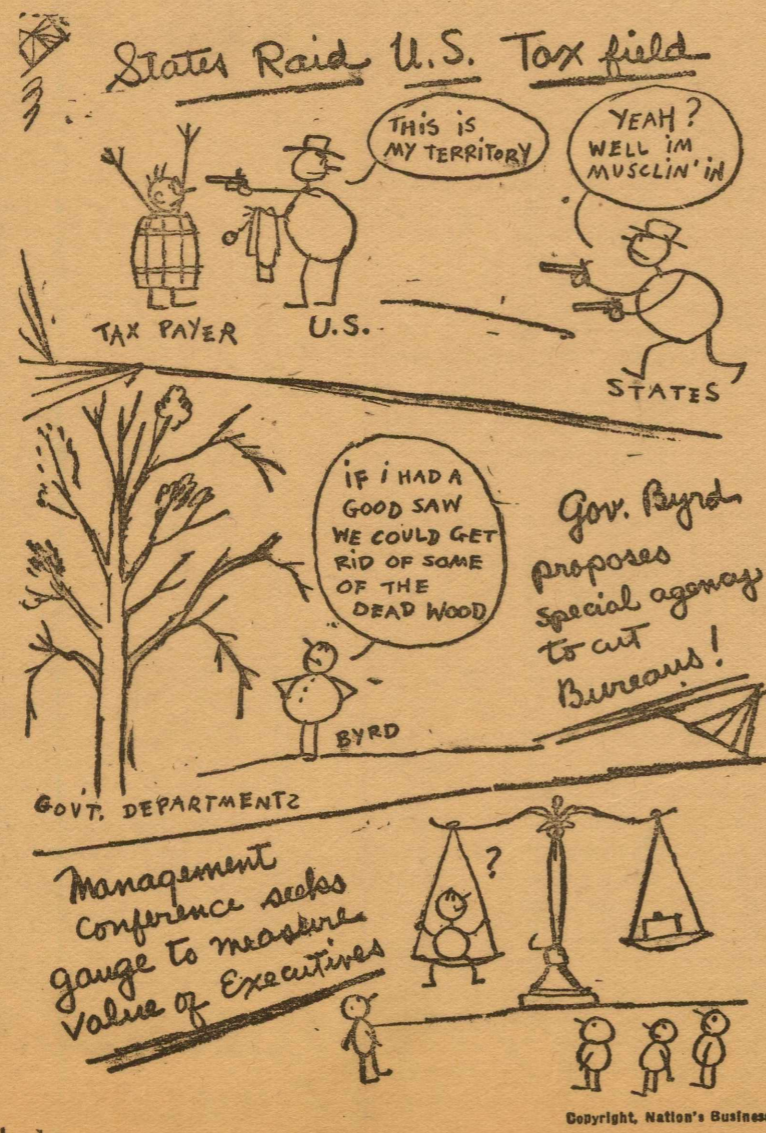 States Raid U.S. Tax field
THIS IS
MY TERRITORY
YEAH?
WELL IM
MUSCLIN' IN
TAX PAYER
U.S.
STATES
IF I HAD A
GOOD SAW
WE COULD GET
RID OF SOME
OF THE
DEAD WOOD
Gov. Byrd
proposes
special agency
to cut
Bureaus!
BYRD
GOV'T. DEPARTMENTS
Management
conference seeks
gauge to measure
value of Executives
?
Copyright, Nation's Business